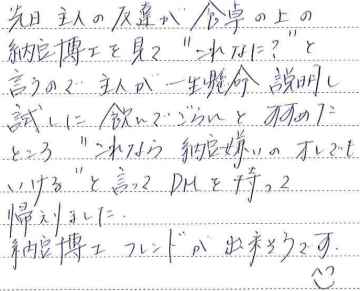 先日 主人の友達が 食卓の上の
納豆博士を見て "これなに?" と
言うので 主人が一生懸命 説明し
試しに 飲んでごらんと すすめた
ところ "これなら 納豆嫌いの オレでも
いける" と言って DMを持って
帰りました.
納豆博士 フレンドが 出来そうです.